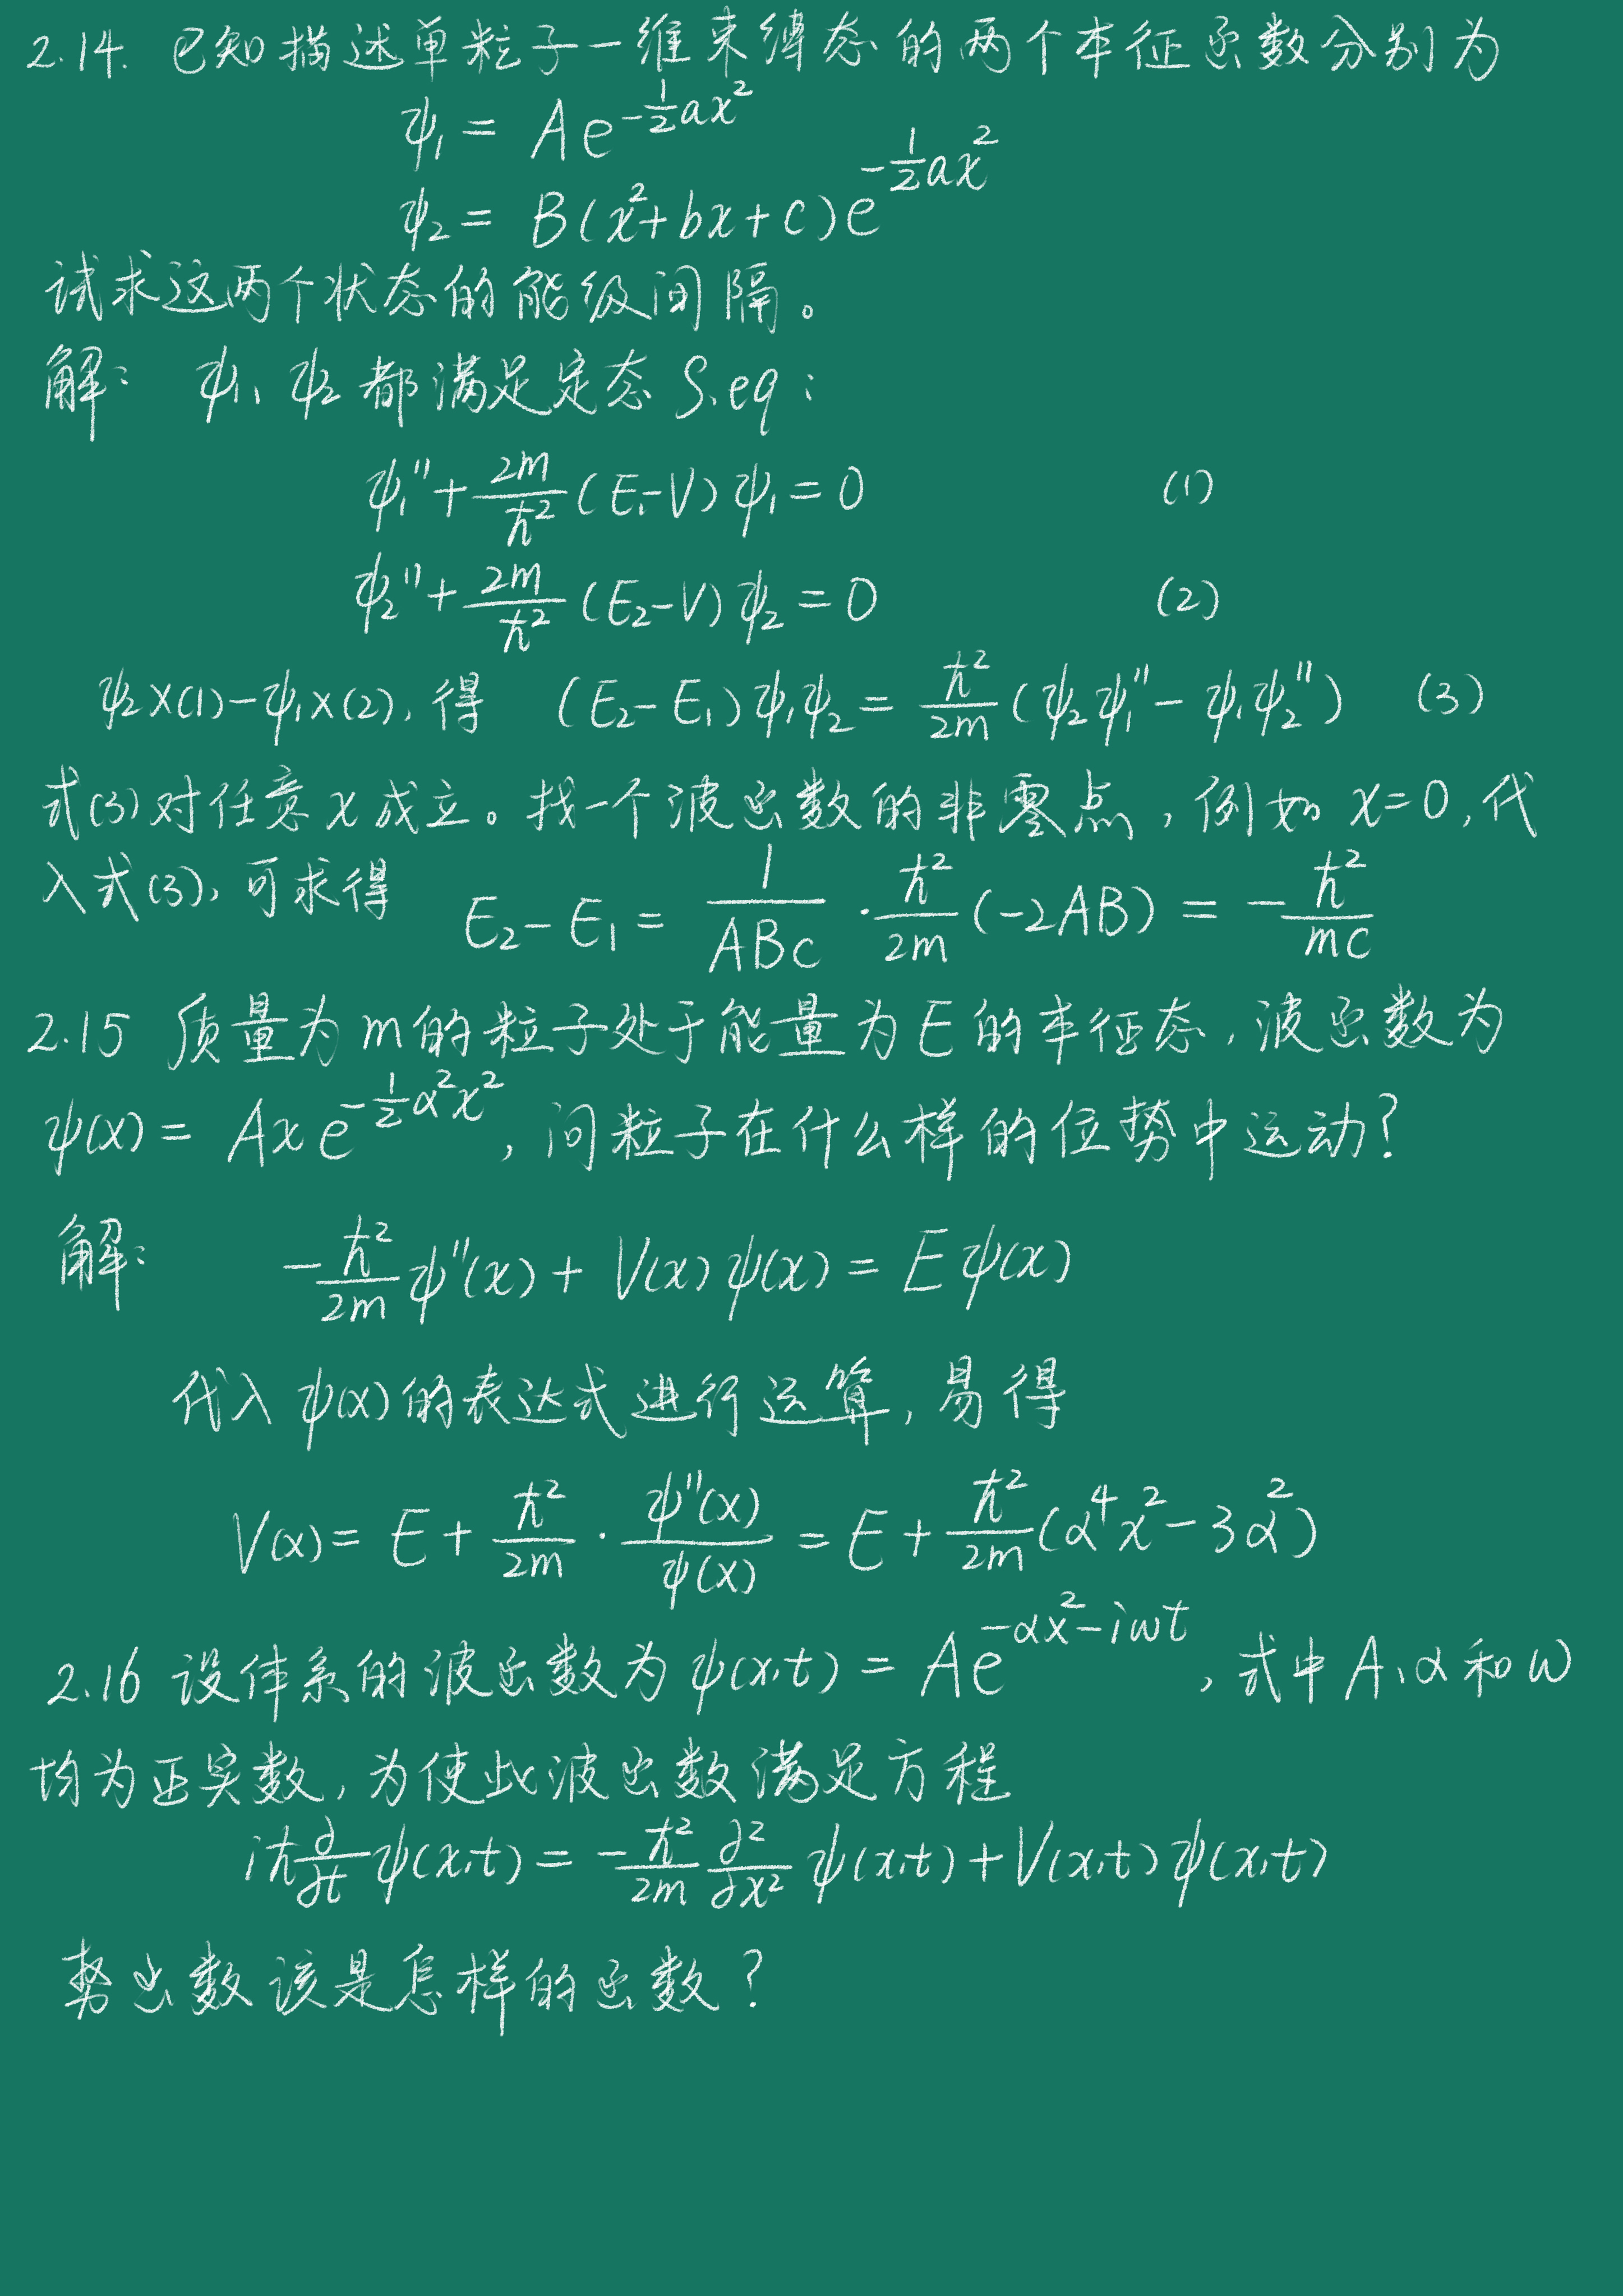 2.14. 已知描述单粒子一维束缚态的两个本征函数分别为
ψ₁ = Ae^{-½ax²}
ψ₂ = B(x²+bx+c)e^{-½ax²}
试求这两个状态的能级间隔。
解: ψ₁、ψ₂都满足定态S.eq:
ψ₁''+\frac{2m}{ħ²}(E₁-V)ψ₁=0 (1)
ψ₂''+\frac{2m}{ħ²}(E₂-V)ψ₂=0 (2)
ψ₂×(1)-ψ₁×(2), 得 (E₂-E₁)ψ₁ψ₂=\frac{ħ²}{2m}(ψ₂ψ₁''-ψ₁ψ₂'') (3)
式(3)对任意x成立。找一个波函数的非零点, 例如x=0, 代
入式(3), 可求得 E₂-E₁=\frac{1}{ABc}·\frac{ħ²}{2m}(-2AB)=-\frac{ħ²}{mc}
2.15 质量为m的粒子处于能量为E的本征态, 波函数为
ψ(x)=Axe^{-½α²x²}, 问粒子在什么样的位势中运动?
解: -\frac{ħ²}{2m}ψ''(x)+V(x)ψ(x)=Eψ(x)
代入ψ(x)的表达式进行运算, 易得
V(x)=E+\frac{ħ²}{2m}·\frac{ψ''(x)}{ψ(x)}=E+\frac{ħ²}{2m}(α⁴x²-3α²)
2.16 设体系的波函数为ψ(x,t)=Ae^{-αx²-iωt}, 式中A、α和ω
均为正实数, 为使此波函数满足方程
iħ\frac{∂}{∂t}ψ(x,t)=-\frac{ħ²}{2m}\frac{∂²}{∂x²}ψ(x,t)+V(x,t)ψ(x,t)
势函数该是怎样的函数?